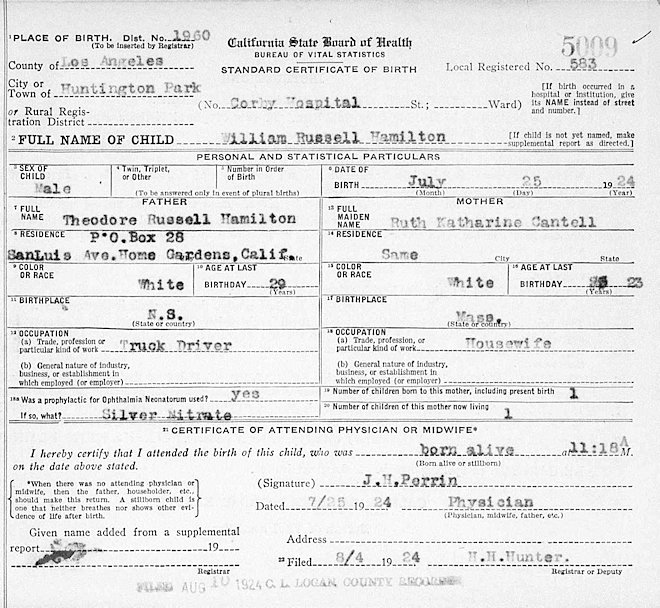 1 PLACE OF BIRTH. Dist. No. 1960
(To be inserted by Registrar)
California State Board of Health
BUREAU OF VITAL STATISTICS
STANDARD CERTIFICATE OF BIRTH
5009
County of Los Angeles
Local Registered No. 583
City or
Town of Huntington Park
or Rural Regis-
tration District
(No. Corby Hospital St.; Ward)
[If birth occurred in a
hospital or institution, give
its NAME instead of street
and number.]
2 FULL NAME OF CHILD William Russell Hamilton
[If child is not yet named, make
supplemental report as directed.]
PERSONAL AND STATISTICAL PARTICULARS
3 SEX OF
CHILD
Male
4 Twin, Triplet,
or Other
5 Number in Order
of Birth
(To be answered only in event of plural births)
6 DATE OF
BIRTH July 25 1924
(Month) (Day) (Year)
FATHER
7 FULL
NAME Theodore Russell Hamilton
8 RESIDENCE P.O.Box 28
SanLuis Ave.Home Gardens,Calif.
9 COLOR
OR RACE
White
10 AGE AT LAST
BIRTHDAY 29
(Years)
11 BIRTHPLACE
N.S.
(State or country)
12 OCCUPATION
(a) Trade, profession or
particular kind of work Truck Driver
(b) General nature of industry,
business, or establishment in
which employed (or employer)
MOTHER
13 FULL
MAIDEN
NAME Ruth Katharine Cantell
14 RESIDENCE
Same City State
15 COLOR
OR RACE
White
16 AGE AT LAST
BIRTHDAY 23
(Years)
17 BIRTHPLACE
Mass.
(State or country)
18 OCCUPATION
(a) Trade, profession or
particular kind of work Housewife
(b) General nature of industry,
business, or establishment in
which employed (or employer)
18a Was a prophylactic for Ophthalmia Neonatorum used? yes
If so, what? Silver Nitrate
19 Number of children born to this mother, including present birth 1
20 Number of children of this mother now living 1
21 CERTIFICATE OF ATTENDING PHYSICIAN OR MIDWIFE*
I hereby certify that I attended the birth of this child, who was born alive at 11:18 A M.
(Born alive or stillborn)
on the date above stated.
*When there was no attending physician or
midwife, then the father, householder, etc.,
should make this return. A stillborn child is
one that neither breathes nor shows other evi-
dence of life after birth.
(Signature) J.H.Perrin
Dated 7/25 1924 Physician
(Physician, midwife, father, etc.)
Given name added from a supplemental
report 19
Registrar
Address
22 Filed 8/4 1924 H.H.Hunter.
Registrar or Deputy
FILED AUG 10 1924 C. L. LOGAN, COUNTY RECORDER